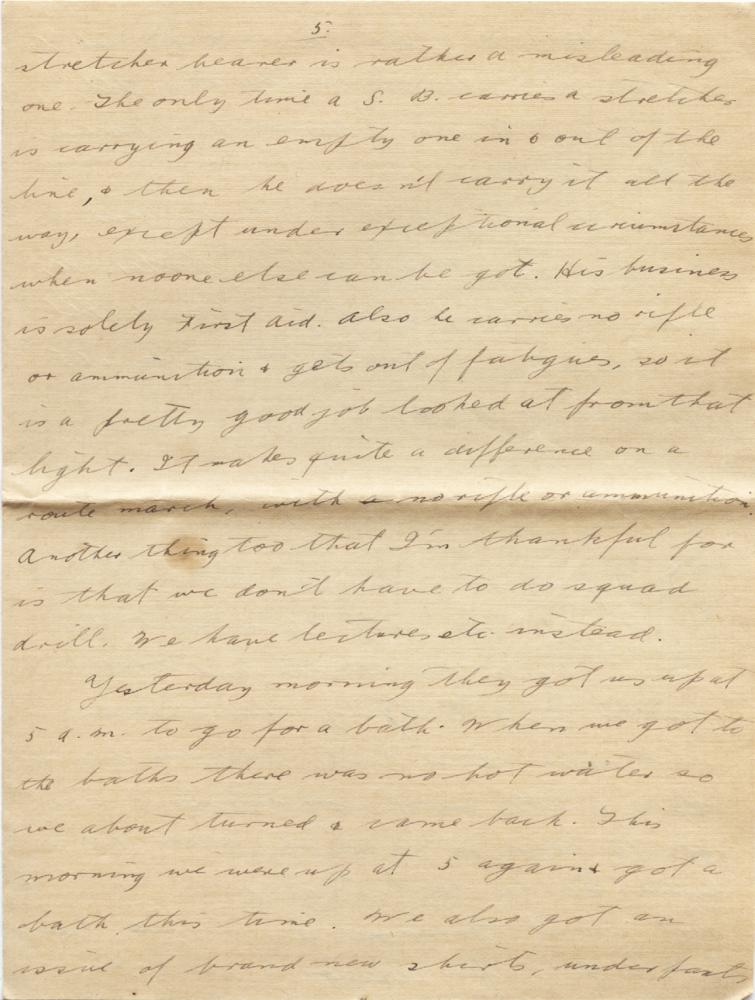 5.
stretcher bearer is rather a misleading
one. The only time a S. B. carries a stretcher
is carrying an empty one in & out of the
line, & then he doesn't carry it all the
way, except under exceptional circumstances
when noone else can be got. His business
is solely First Aid. Also he carries no rifle
or ammunition & gets out of fatigues, so it
is a pretty good job looked at from that
light. It makes quite a difference on a
route march, with no rifle or ammunition.
Another thing too that I'm thankful for
is that we don't have to do squad
drill. We have lectures etc. instead.
Yesterday morning they got us up at
5 a.m. to go for a bath. When we got to
the baths there was no hot water so
we about turned & came back. This
morning we were up at 5 again & got a
bath this time. We also got an
issue of brand new shirts, underpants